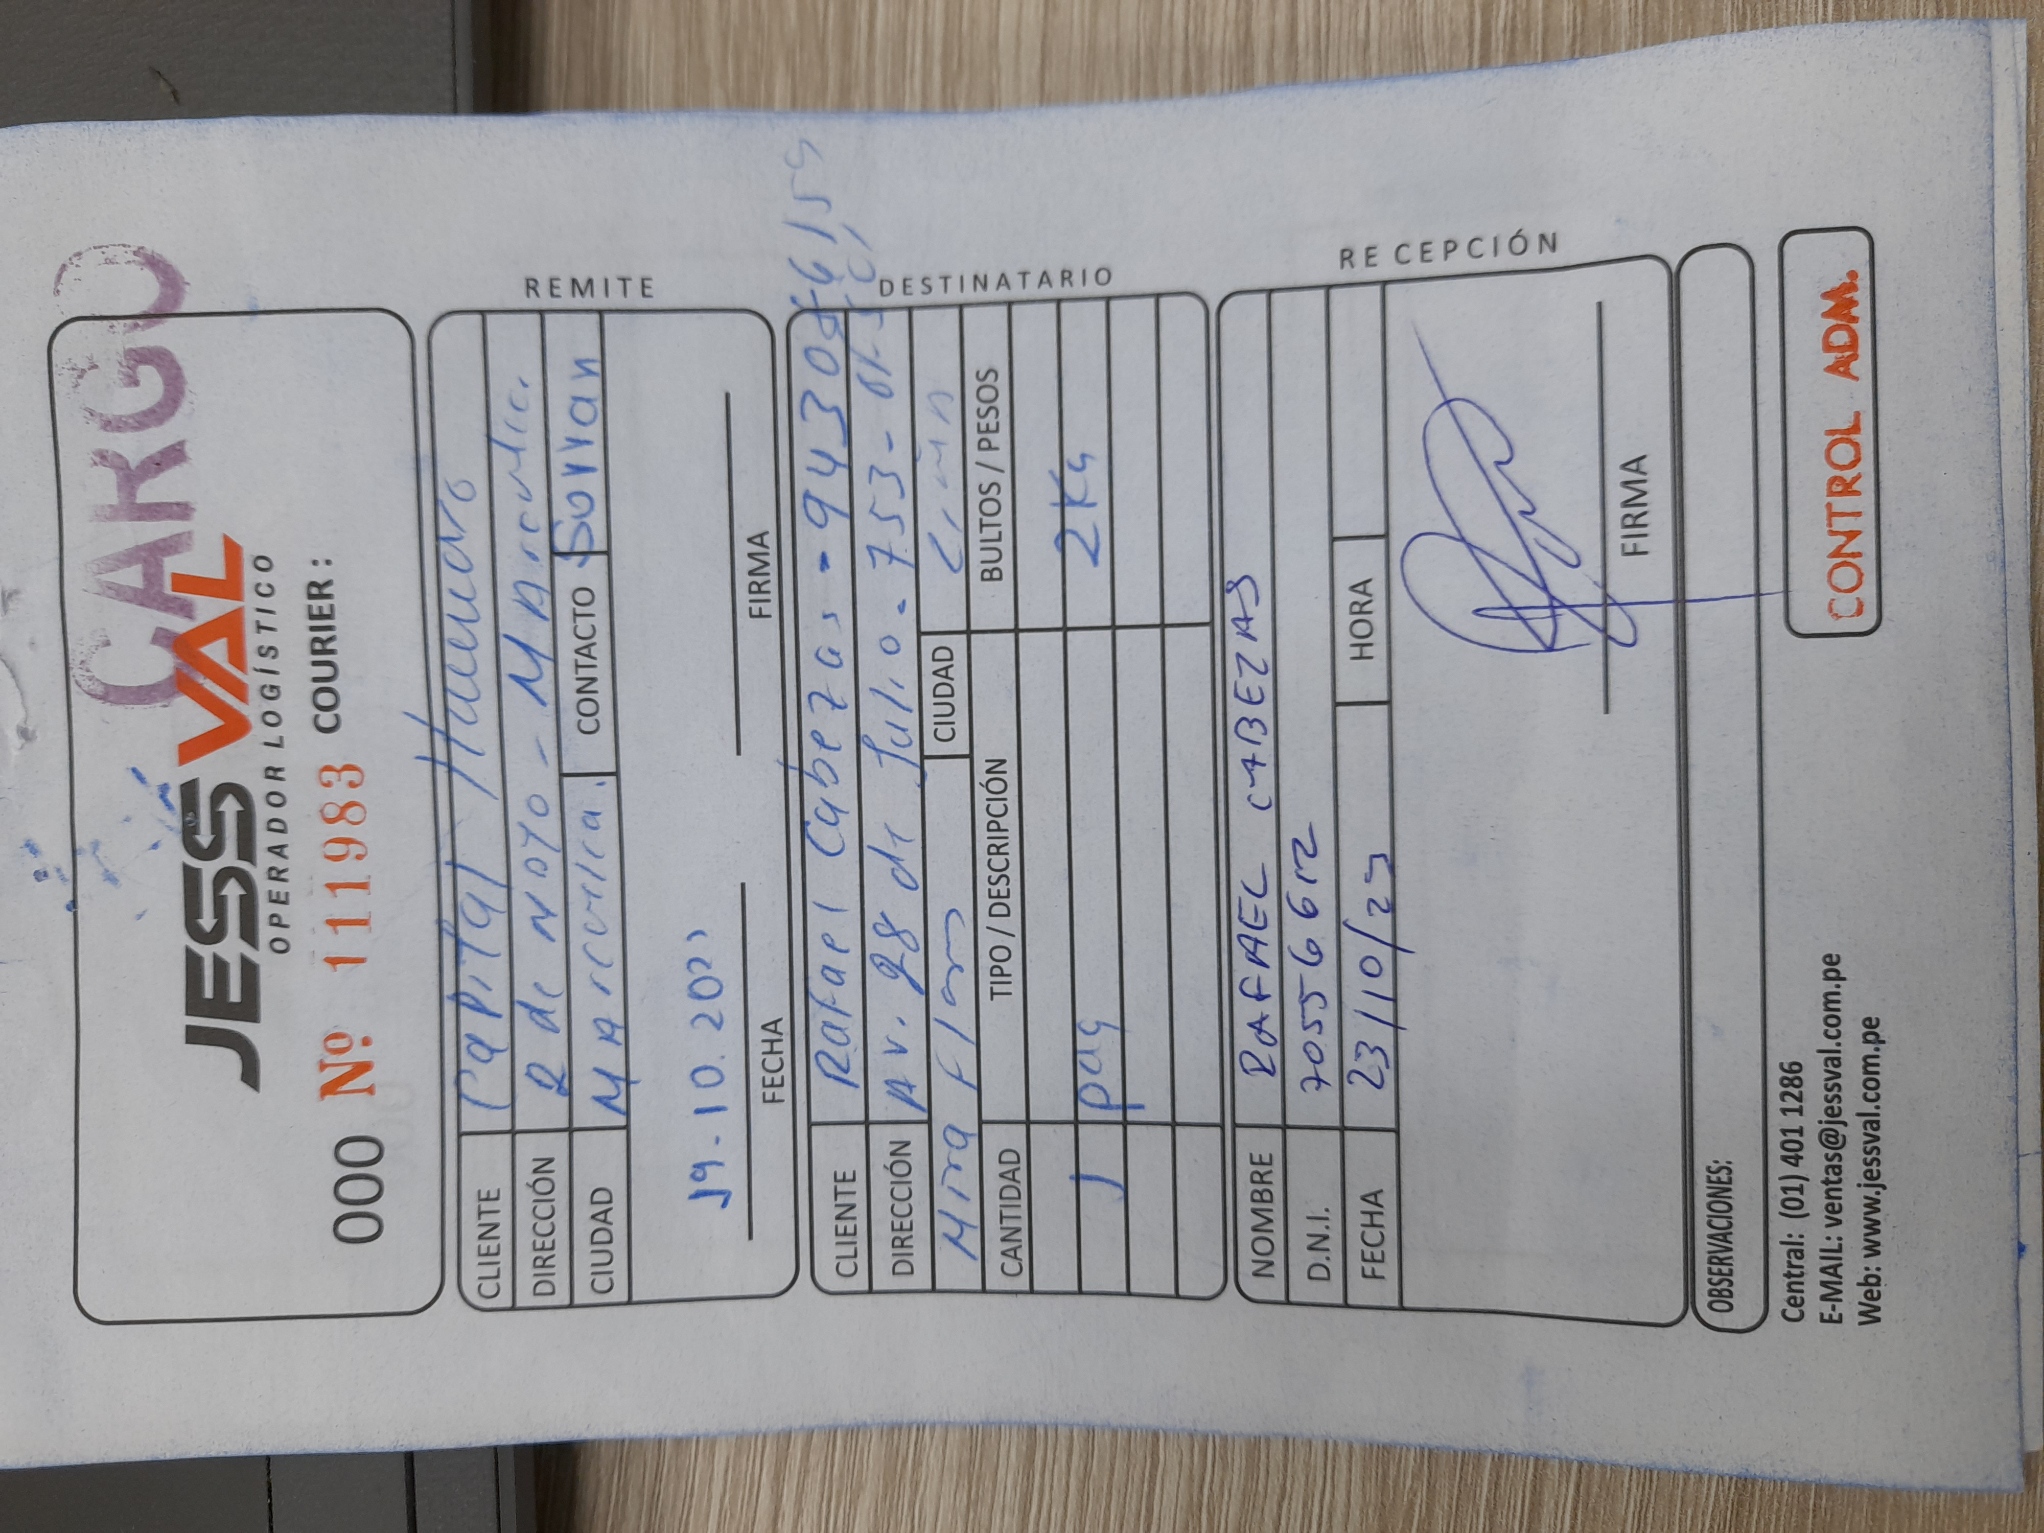 CARGO
JESSVAL
OPERADOR LOGÍSTICO
000 Nº 111983 COURIER :
CLIENTE Capital Humano
DIRECCIÓN 2 de Mayo - MArcavelica
CIUDAD MArcavelica. CONTACTO
19-10.2023
FECHA FIRMA
REMITE
CLIENTE Rafael Cabezas -
DIRECCIÓN Av. 28 de Julio. 753-
Mira Flores CIUDAD LimA
CANTIDAD TIPO / DESCRIPCIÓN BULTOS / PESOS
1 paq 2Kg
DESTINATARIO
NOMBRE RAFAEL CABEZAS
D.N.I. 70556612
FECHA 23/10/23 HORA
FIRMA
RECEPCIÓN
OBSERVACIONES:
Central: (01) 401 1286
E-MAIL: ventas@jessval.com.pe
Web: www.jessval.com.pe
CONTROL ADM.